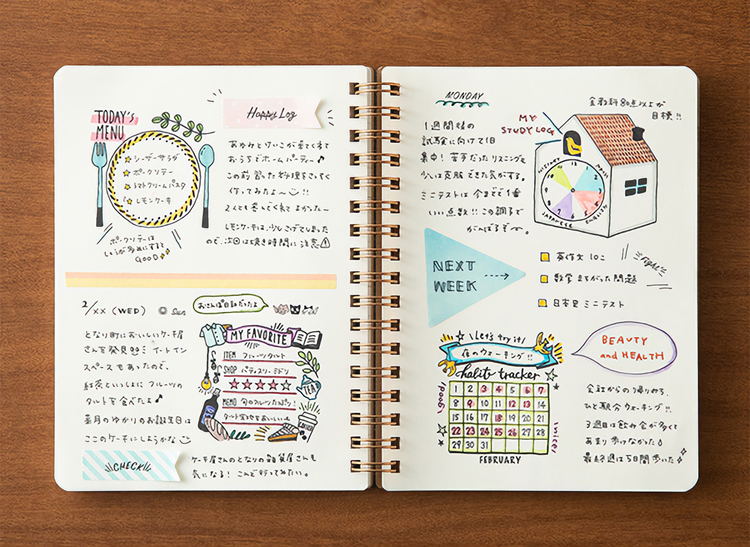 TODAY's
MENU
シーザーサラダ
ポークソテー
トマトクリームパスタ
レモンケーキ
ポークソテーは
GOOD
Happy Log
あゆみとけいこが遊びに来て
おうちでホームパーティー♪
この前習った料理をさっそく
作ってみたよ〜!!
2人とも喜んでくれてよかった
レモンケーキは、少しこげてしまったので、
次回は焼き時間に注意
2/XX (WED)
Sun
おさんぽ日記だったよ
となり町においしいケーキ屋
さんを発見!! イートイン
スペースもあったので、
紅茶といっしょにフルーツの
タルトを食べたよ♪
来月のゆかりのお誕生日は
ここのケーキにしようかな
MY FAVORITE
ITEM フルーツタルト
SHOP パティスリーミドリ
MEMO 旬のフルーツたっぷり!
タルト生地もおいしい
TEA
CHECK!!
ケーキ屋さんのとなりの雑貨屋さんも
気になる! こんど行ってみたい。
MONDAY
1週間後の
試験に向けて1日
集中! 苦手だったリスニングも
少しは克服できた気がする。
ミニテストは今までで1番
いい点数!! この調子で
がんばるぞ〜
MY
STUDY LOG
全教科80点以上が
目標!!
HISTORY
MATH
ENGLISH
JAPANESE
NEXT
WEEK
英作文10こ
数学まちがった問題
日本史ミニテスト
Fight!
Let's try it!
夜のウォーキング!!
habit tracker
good!
nice!
1 2 3 4 5 6 7
8 9 10 11 12 13 14
15 16 17 18 19 20 21
22 23 24 25 26 27 28
29 30 31
FEBRUARY
BEAUTY
and HEALTH
会社からの帰りみち、
ひと駅分ウォーキング!!
3週目は飲み会が多くて
あまり歩けなかった
最終週は5日間歩いた